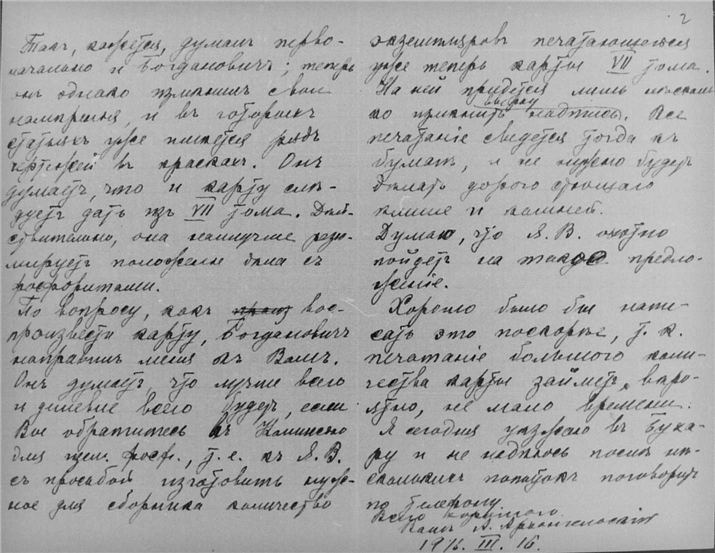 Такъ, кажется, думалъ перво-
начально и Богдановичъ; теперь
онъ однако измѣнилъ свои
намѣренія, и въ готовыхъ
статьяхъ уже имѣется рядъ
чертежей въ краскахъ. Онъ
думаетъ, что и карту слѣ-
дуетъ дать изъ VII тома. Дѣй-
ствительно, она наилучше резю-
мируетъ положеніе дѣла съ
фосфоритами.
По вопросу, какъ вос-
произвести карту, Богдановичъ
направилъ меня къ Вамъ.
Онъ думаетъ, что лучше всего
и дешевле всего будетъ, если
Вы обратитесь въ Комиссію
для фосф., т.е. къ Я. В.
съ просьбой изготовить нуж-
ное для сборника количество
2
экземпляровъ печатающейся
уже теперь карты VII тома.
На ней придется лишь
вверху
надпись. Все
печатаніе сведется тогда къ
бумагѣ, и не нужно будетъ
дѣлать дорого стоющаго
клише и камней.
Думаю, что Я. В. охотно
пойдетъ на такое предло-
женіе.
Хорошо было бы напи-
сать это поскорѣе, т. к.
печатаніе большого коли-
чества карты займетъ, вѣро-
ятно, не мало времени.
Я сегодня уѣзжаю въ Буха-
ру и не надѣюсь послѣ нѣ-
сколькихъ попытокъ поговорить
по телефону.
Всего хорошаго.
Вашъ А. Архангельскій
1916. III. 16.